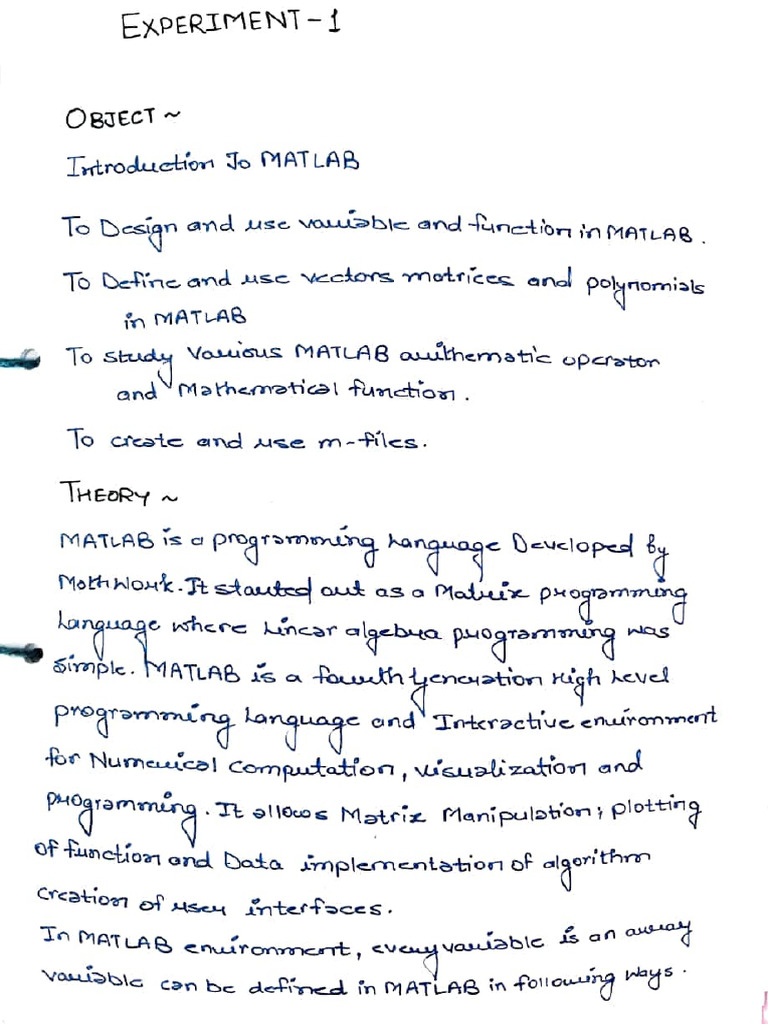 EXPERIMENT-1
OBJECT ~
Introduction To MATLAB
To Design and use variable and function in MATLAB.
To Define and use vectors matrices and polynomials
in MATLAB
To study Various MATLAB arithematic operator
and Mathematical function.
To create and use m-files.
THEORY ~
MATLAB is a programming Language Developed by
MathWork. It started out as a Matrix programming
Language where Linear algebra programming was
simple. MATLAB is a fourth Generation High Level
programming Language and Interactive environment
for Numerical computation, visualization and
programming. It allows Matrix Manipulation; plotting
of function and Data implementation of algorithm
creation of user interfaces.
In MATLAB environment, every variable is an array
variable can be defined in MATLAB in following ways.